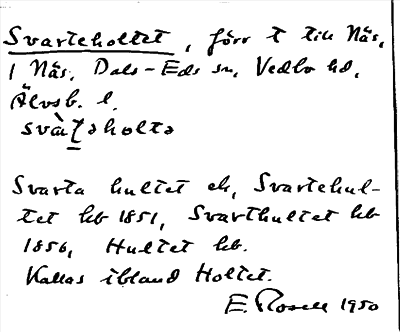 Svarteholtet, förr t till Näs,
1 Näs, Dals-Eds sn, Vedbo hd,
Älvsb. l.
svàʈəholtə
Svarta hultet ek, Svartehul-
tet hb 1851, Svarthultet hb
1856, Hultet hb.
Kallas ibland Holtet.
E. Rosell 1950